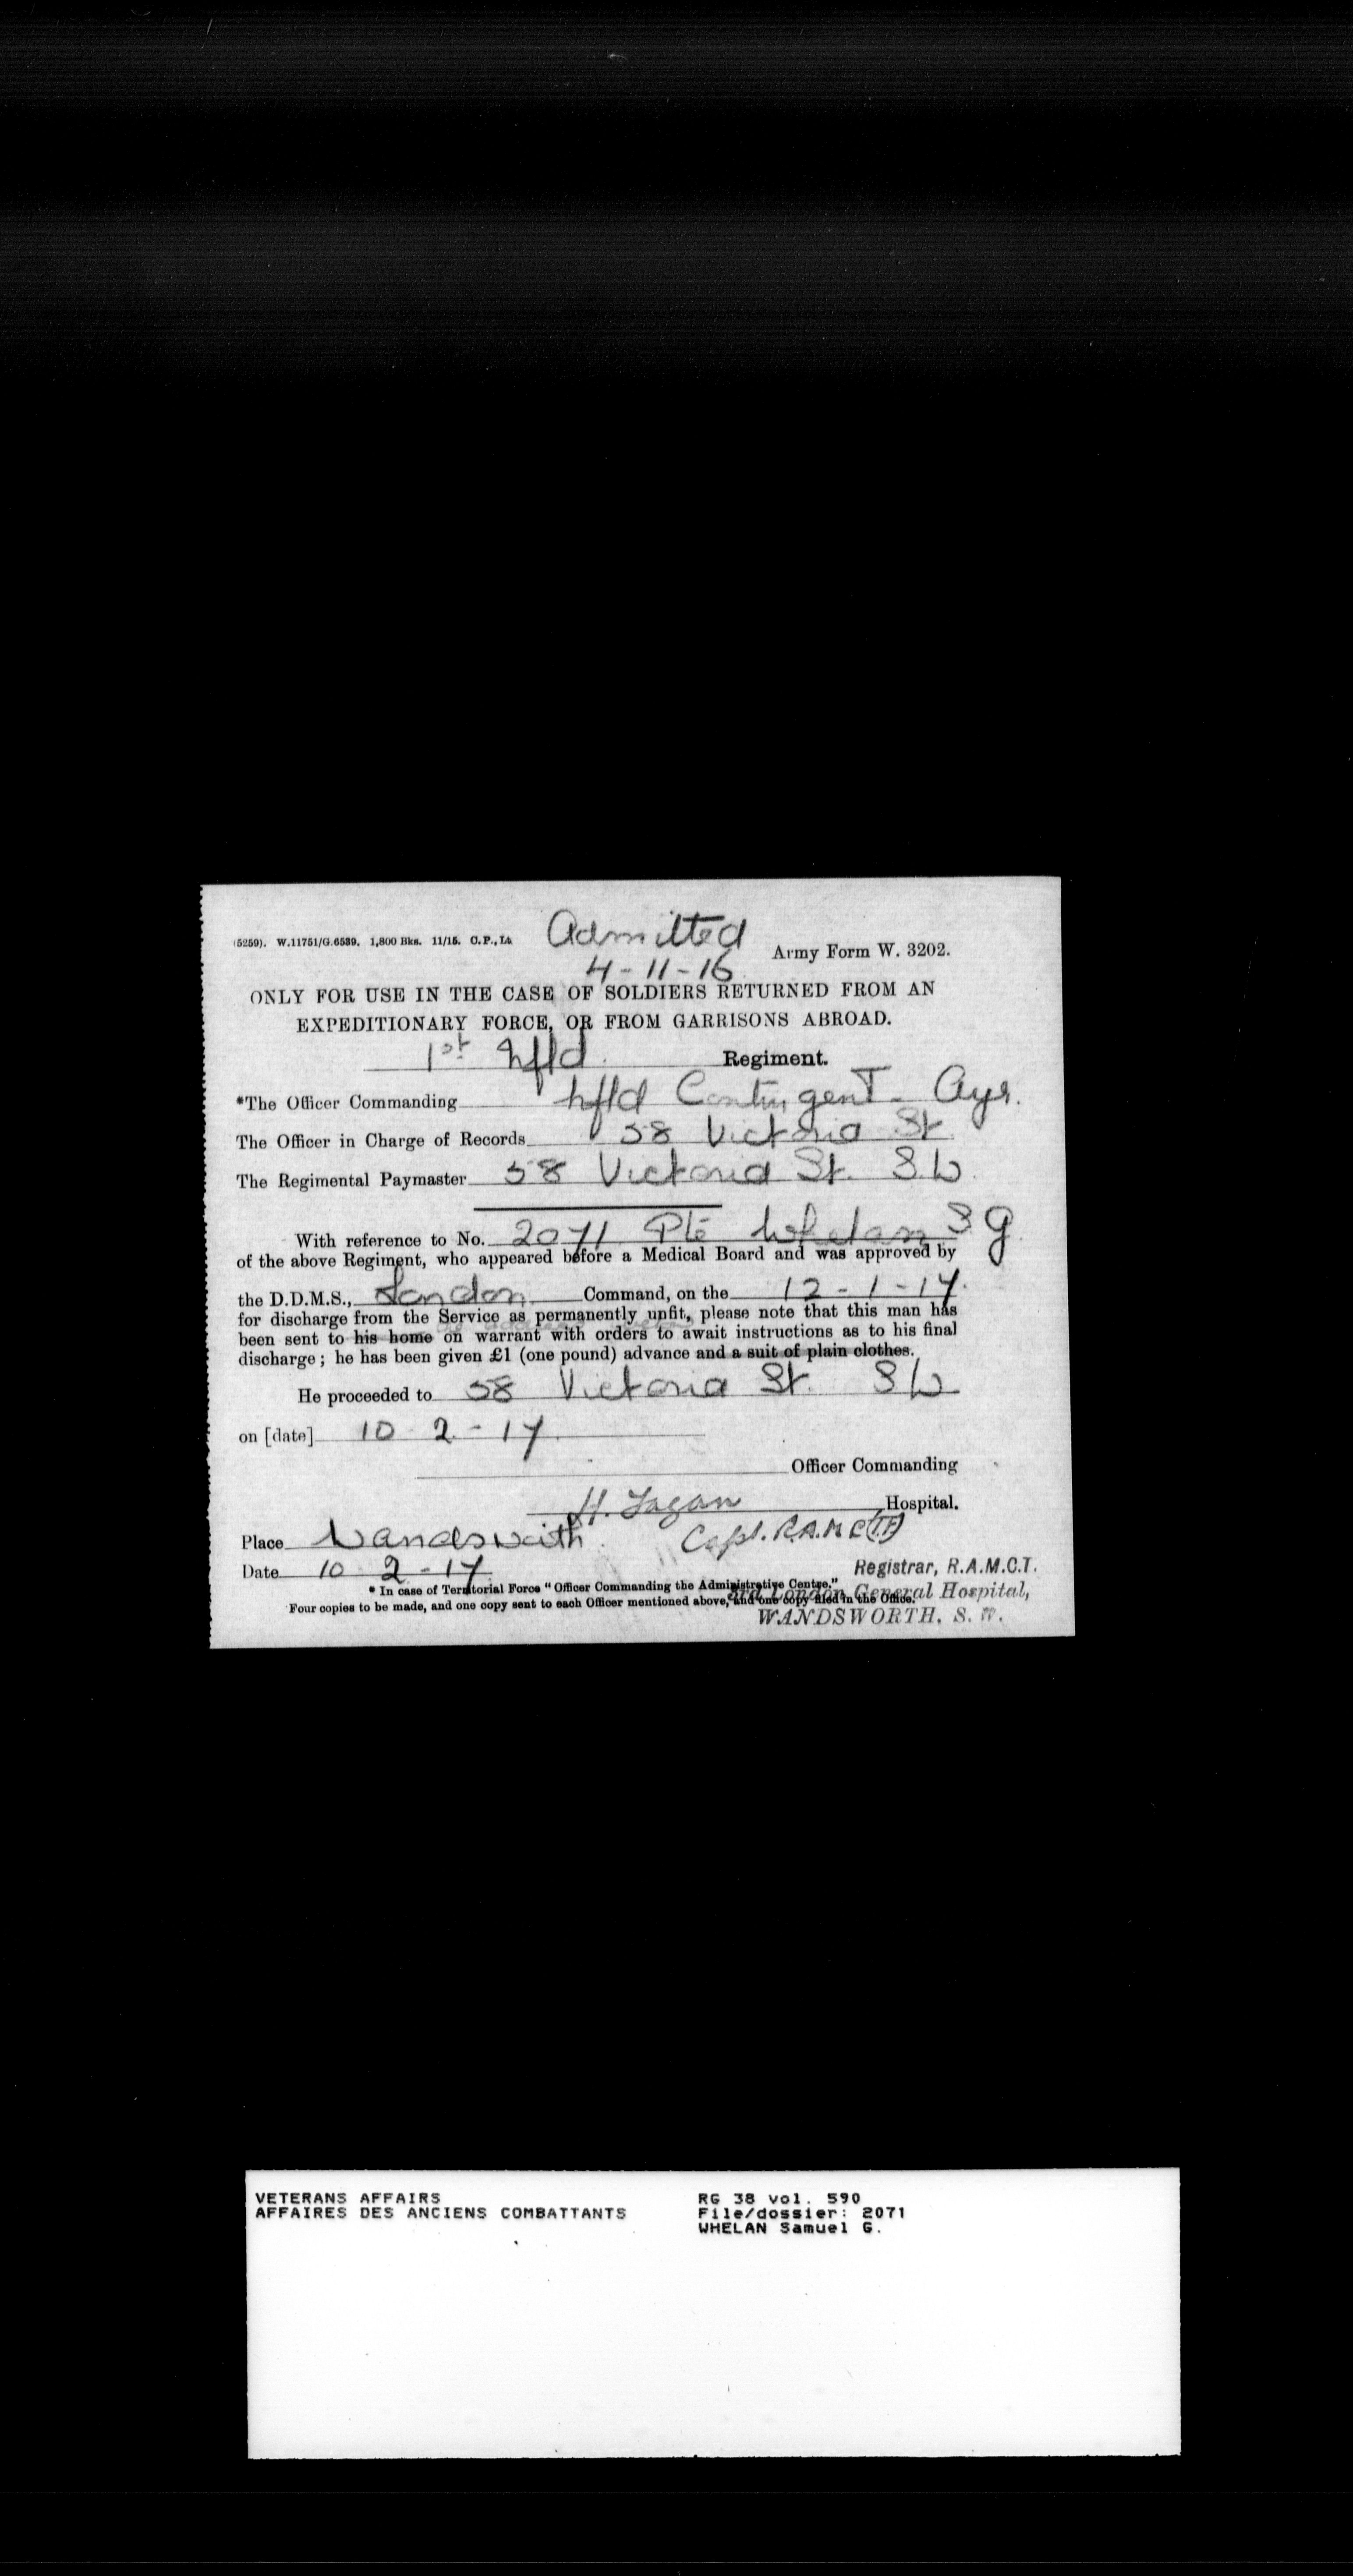 (5259). W.11751/G.6539. 1,800 Bks. 11/15. C.P., Ld.
Admitted
4-11-16
Army Form W. 3202.
ONLY FOR USE IN THE CASE OF SOLDIERS RETURNED FROM AN
EXPEDITIONARY FORCE, OR FROM GARRISONS ABROAD.
1st Nfld. Regiment.
*The Officer Commanding Nfld Contingent - Ayr.
The Officer in Charge of Records 58 Victoria St
The Regimental Paymaster 58 Victoria St. S.W.
With reference to No. 2071 Pte Whelan S G.
of the above Regiment, who appeared before a Medical Board and was approved by
the D.D.M.S., London Command, on the 12-1-17.
for discharge from the Service as permanently unfit, please note that this man has
been sent to his home on warrant with orders to await instructions as to his final
discharge; he has been given £1 (one pound) advance and a suit of plain clothes.
He proceeded to 58 Victoria St. S W
on [date] 10-2-17.
Officer Commanding
Hospital.
Capt. R.A.M.C (T.F)
Place Wandsworth.
Date 10 2-17
Registrar, R.A.M.C.T.
* In case of Territorial Force "Officer Commanding the Administrative Centre."
3rd London General Hospital,
Four copies to be made, and one copy sent to each Officer mentioned above, and one copy filed in the Office.
WANDSWORTH. S. W.
VETERANS AFFAIRS
AFFAIRES DES ANCIENS COMBATTANTS
RG 38 vol. 590
File/dossier: 2071
WHELAN Samuel G.